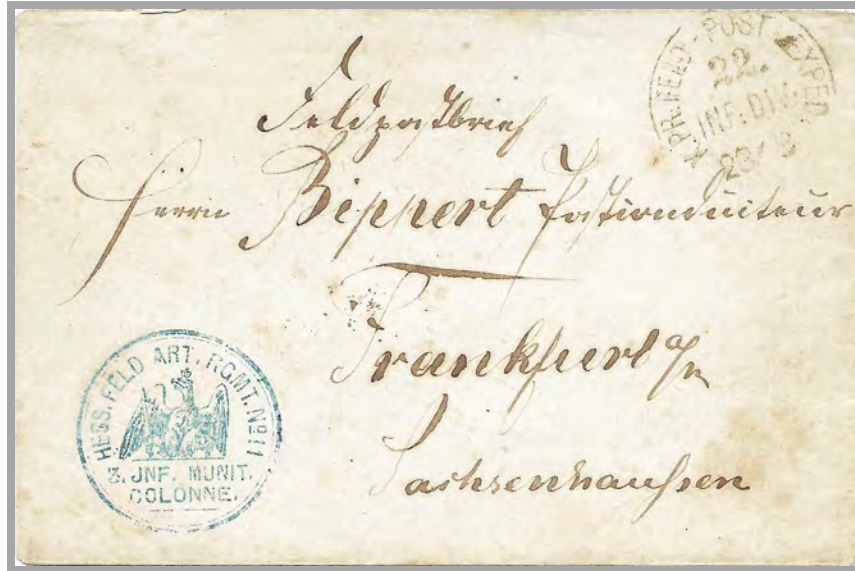 K.PR.FELD-POST EXPED
22.
INF.DIV.
23/8
Feldpostbrief
Herrn Bippert Postconducteur
Frankfurt a/M
Sachsenhausen
HESS. FELD ART. RGMT. No 11
3. INF. MUNIT.
COLONNE.